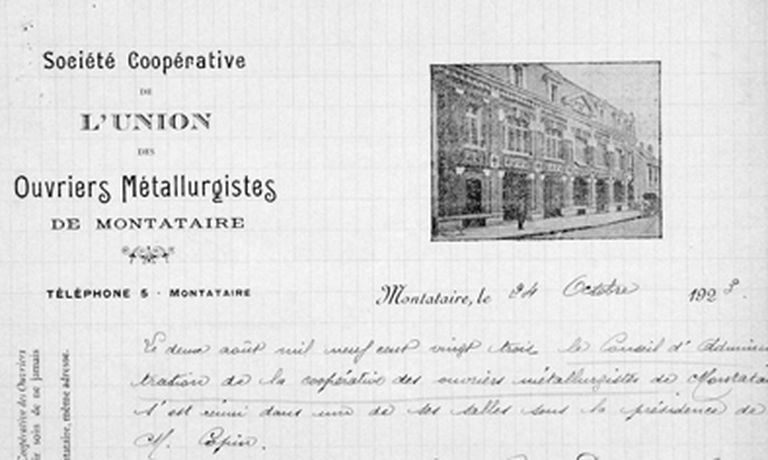 Société Coopérative
DE
L'UNION
DES
Ouvriers Métallurgistes
DE MONTATAIRE
TÉLÉPHONE 5 - MONTATAIRE
Montataire, le 24 Octobre 1923.
Le deux août mil neuf cent vingt trois le Conseil d'Adminis
tration de la coopérative des ouvriers métallurgistes de Montatai
s'est réuni dans une de ses salles sous la présidence de
M. Copin.
Coopérative des Ouvriers
soin de ne jamais
ntataire, même adresse.